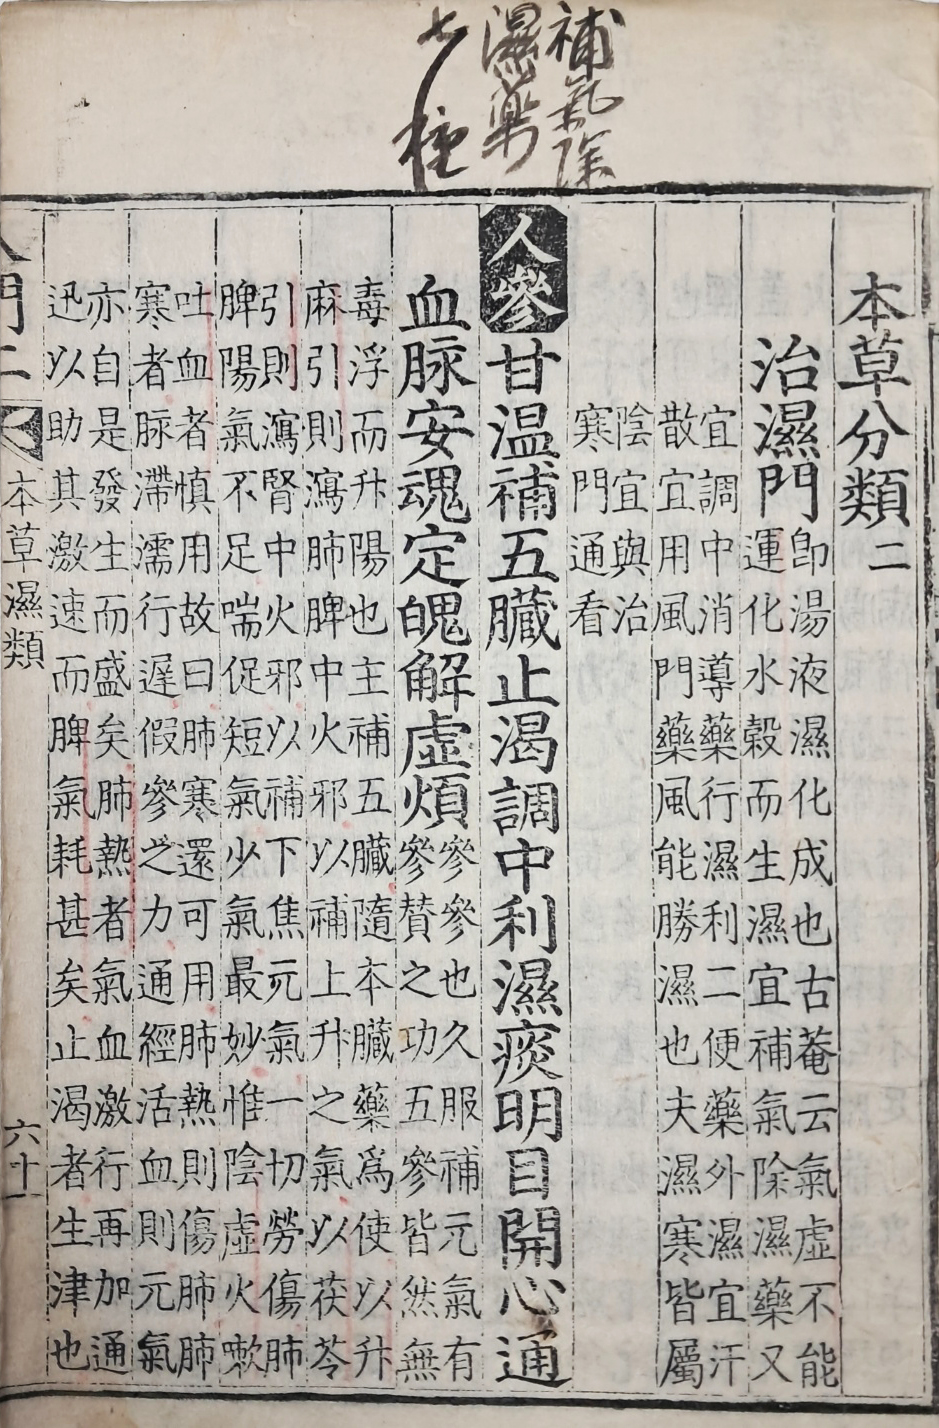 補氣除
濕藥
七種
本草分類二
治濕門
即湯液濕化成也古菴云氣虛不能
運化水穀而生濕宜補氣除濕藥又
宜調中消導藥行濕利二便藥外濕宜汗
散宜用風門藥風能勝濕也夫濕寒皆屬
陰宜與治
寒門通看
人參
甘溫補五臟止渴調中利濕痰明目開心通
血脉安魂定魄解虛煩
參參也久服補元氣有
參贊之功五參皆然無
毒浮而升陽也主補五臟隨本臟藥爲使以升
麻引則瀉肺脾中火邪以補上升之氣以茯苓
引則瀉腎中火邪以補下焦元氣一切勞傷肺
脾陽氣不足喘促短氣少氣最妙惟陰虛火嗽
吐血者慎用故曰肺寒還可用肺熱則傷肺肺
寒者脉滯濡行遲假參之力通經活血則元氣
亦自是發生而盛矣肺熱者氣血激行再加通
迅以助其激速而脾氣耗甚矣止渴者生津也
入門二
本草濕類
六十一